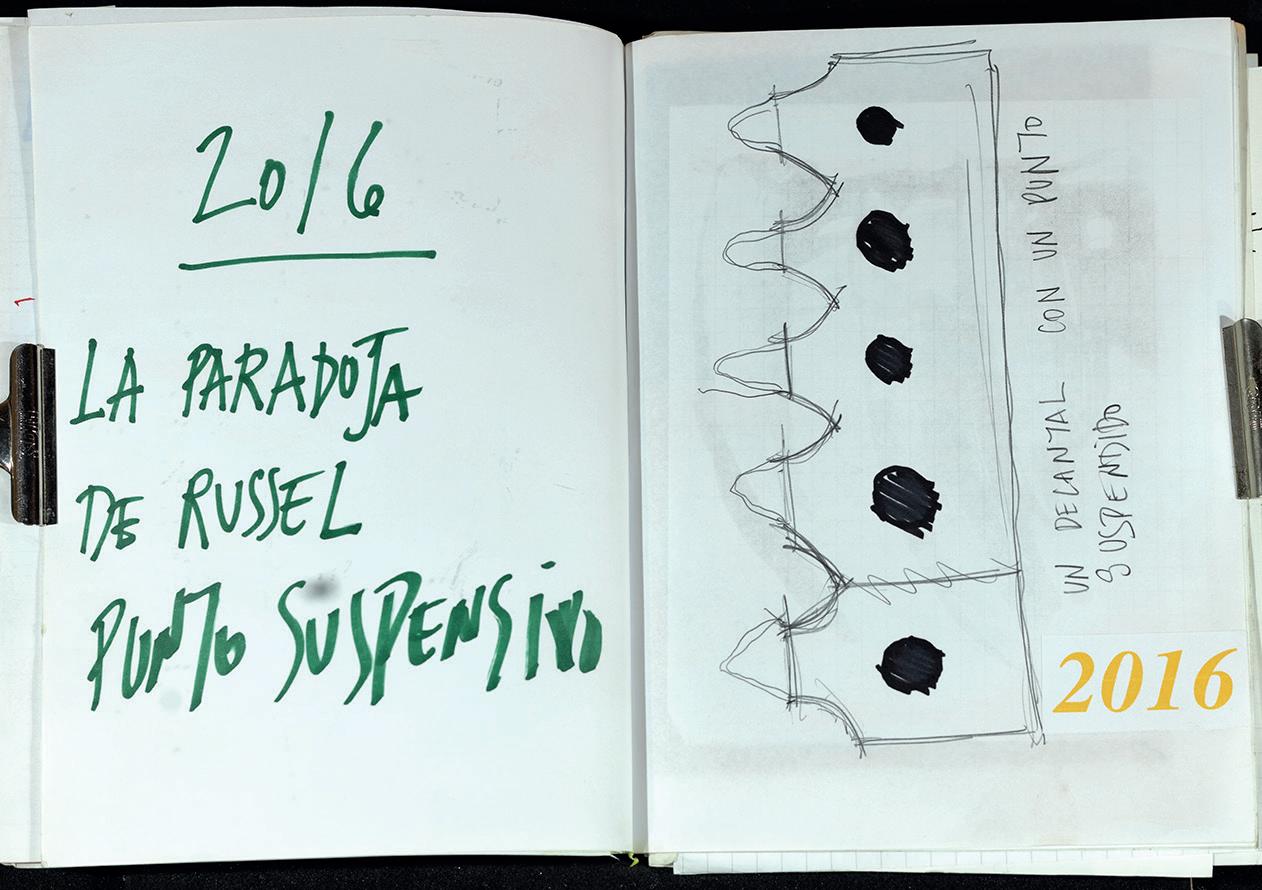 2016
LA PARADOJA
DE RUSSEL
PUNTO SUSPENSIVO
UN DELANTAL CON UN PUNTO
SUSPENDIDO
2016